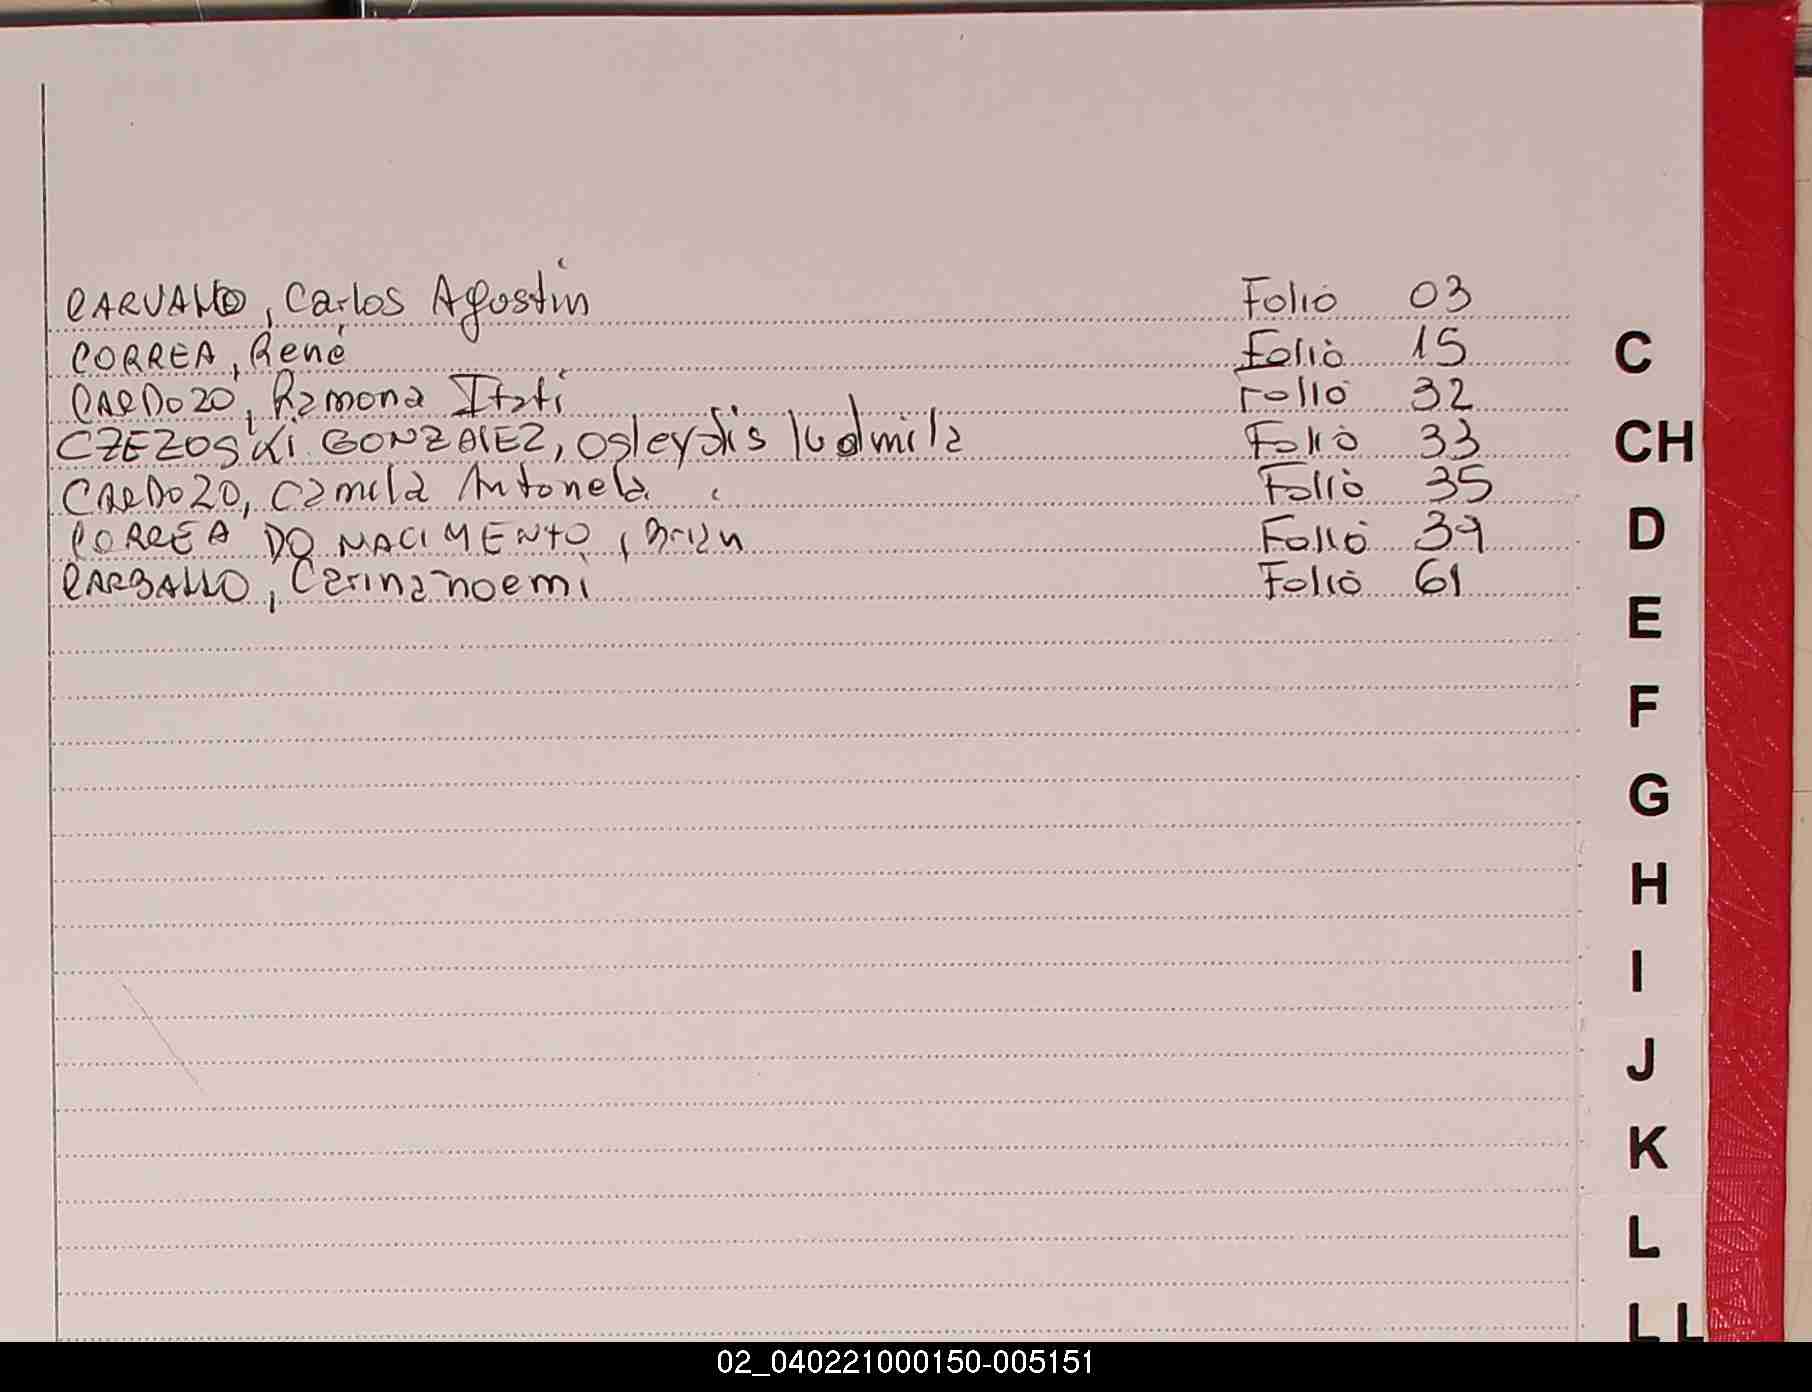 CARVALLO, Carlos Agustín Folio 03
CORREA, René Folio 15
CARDOZO, Ramona Itatí Folio 32
CZEZOSKI GONZALEZ, Osleydis ludmila Folio 33
CARDOZO, Camila Antonela Folio 35
CORREA DO NACIMENTO, Brian Folio 39
CARBALLO, Carina noemí Folio 61
C
CH
D
E
F
G
H
I
J
K
L
LL
02_040221000150-005151